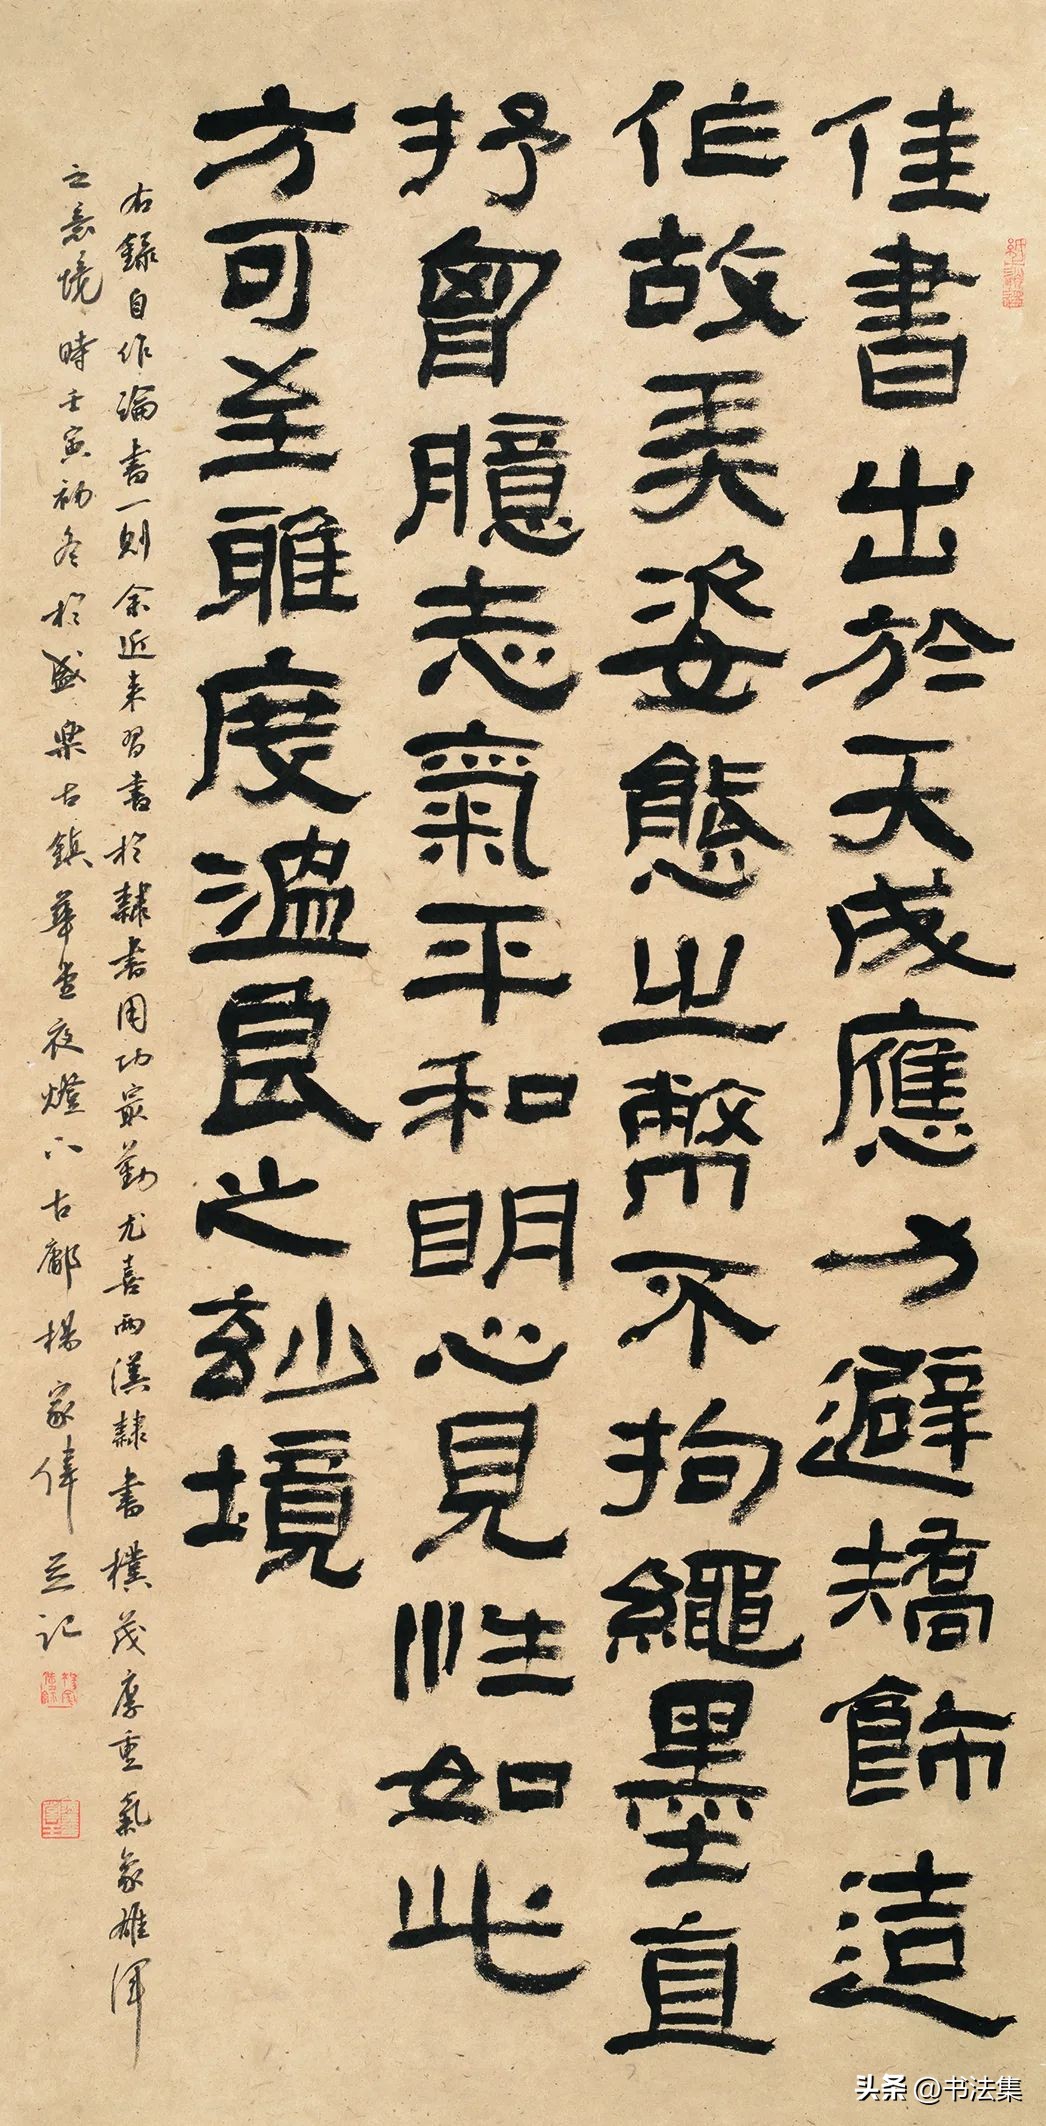 佳書出於天成應力避矯飾造
作故美姿態之弊不拘繩墨直
抒胷臆志氣平和明心見性如此
方可至雅度溫良之妙境
右錄自作論書一則余近來習書於隸書用功最勤尤喜兩漢隸書樸茂厚重氣象雄渾
之意境時壬寅初冬於盛樂古鎮華堂夜燈下古鄜楊家偉並記
头条 @书法集